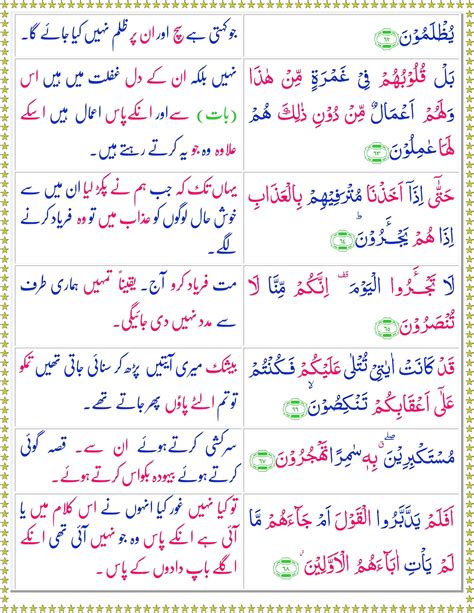 يُظْلَمُوْنَ ﴿٦٢﴾
جو کہتی ہے سچ اور ان پر ظلم نہیں کیا جائے گا۔
بَلْ قُلُوْبُهُمْ فِيْ غَمْرَةٍ مِّنْ هٰذَا
وَلَهُمْ اَعْمَالٌ مِّنْ دُوْنِ ذٰلِكَ هُمْ
لَهَا عٰمِلُوْنَ ﴿٦٣﴾
نہیں بلکہ ان کے دل غفلت میں ہیں اس
(بات) سے اور انکے پاس اعمال ہیں اسکے
علاوہ وہ جو یہ کرتے رہتے ہیں۔
حَتّٰٓى اِذَآ اَخَذْنَا مُتْرَفِيْهِمْ بِالْعَذَابِ
اِذَا هُمْ يَجْـَٔرُوْنَ ؕ ﴿٦٤﴾
یہاں تک کہ جب ہم نے پکڑ لیا ان میں سے
خوش حال لوگوں کو عذاب میں تو وہ فریاد کرنے
لگے۔
لَا تَجْـَٔرُوا الْيَوْمَ ۫ اِنَّكُمْ مِّنَّا لَا
تُنْصَرُوْنَ ﴿٦٥﴾
مت فریاد کرو آج۔ یقیناً تمہیں ہماری طرف
سے مدد نہیں دی جائیگی۔
قَدْ كَانَتْ اٰيٰتِيْ تُتْلٰى عَلَيْكُمْ فَكُنْتُمْ
عَلٰٓى اَعْقَابِكُمْ تَنْكِصُوْنَ ۙ ﴿٦٦﴾
بیشک میری آیتیں پڑھ کر سنائی جاتی تھیں تمکو
تو تم الٹے پاؤں پھر جاتے تھے۔
مُسْتَكْبِرِيْنَ ۖ بِهٖ سٰمِرًا تَهْجُرُوْنَ ﴿٦٧﴾
سرکشی کرتے ہوئے ان سے۔ قصہ گوئی
کرتے ہوئے بیہودہ بکواس کرتے ہوئے۔
اَفَلَمْ يَدَّبَّرُوا الْقَوْلَ اَمْ جَآءَهُمْ مَّا
لَمْ يَاْتِ اٰبَآءَهُمُ الْاَوَّلِيْنَ ۫ ﴿٦٨﴾
تو کیا نہیں غور کیا انہوں نے اس کلام میں یا
آئی ہے انکے پاس وہ جو نہیں آئی تھی انکے
اگلے باپ دادوں کے پاس۔